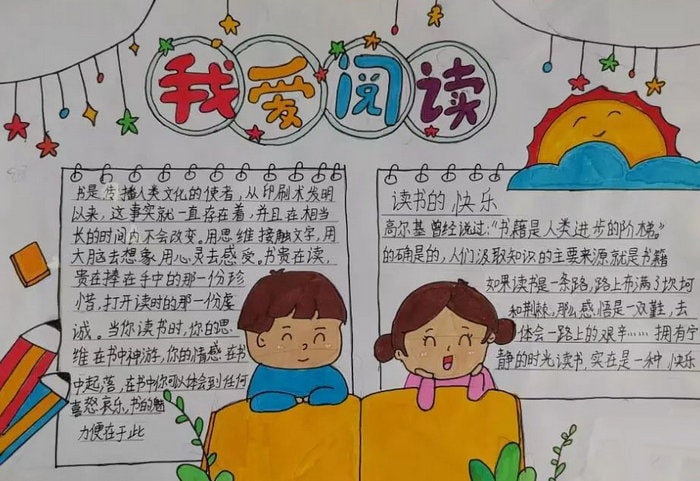 我爱阅读
书是传播人类文化的使者，从印刷术发明
以来，这事实就一直存在着，并且在相当
长的时间内不会改变。用思维接触文字，用
大脑去想象，用心灵去感受。书贵在读，
贵在捧在手中的那一份珍
惜，打开读时的那一份虔
诚。当你读书时，你的思
维在书中神游，你的情感在书
中起落，在书中你可以体会到任何
喜怒哀乐，书的魅
力便在于此
读书的快乐
高尔基曾经说过："书籍是人类进步的阶梯。"
的确是的，人们汲取知识的主要来源就是书籍
如果读书是一条路，路上布满了坎坷
和荆棘，那么感悟是一双鞋，去
体会一路上的艰辛……拥有宁
静的时光读书，实在是一种快乐